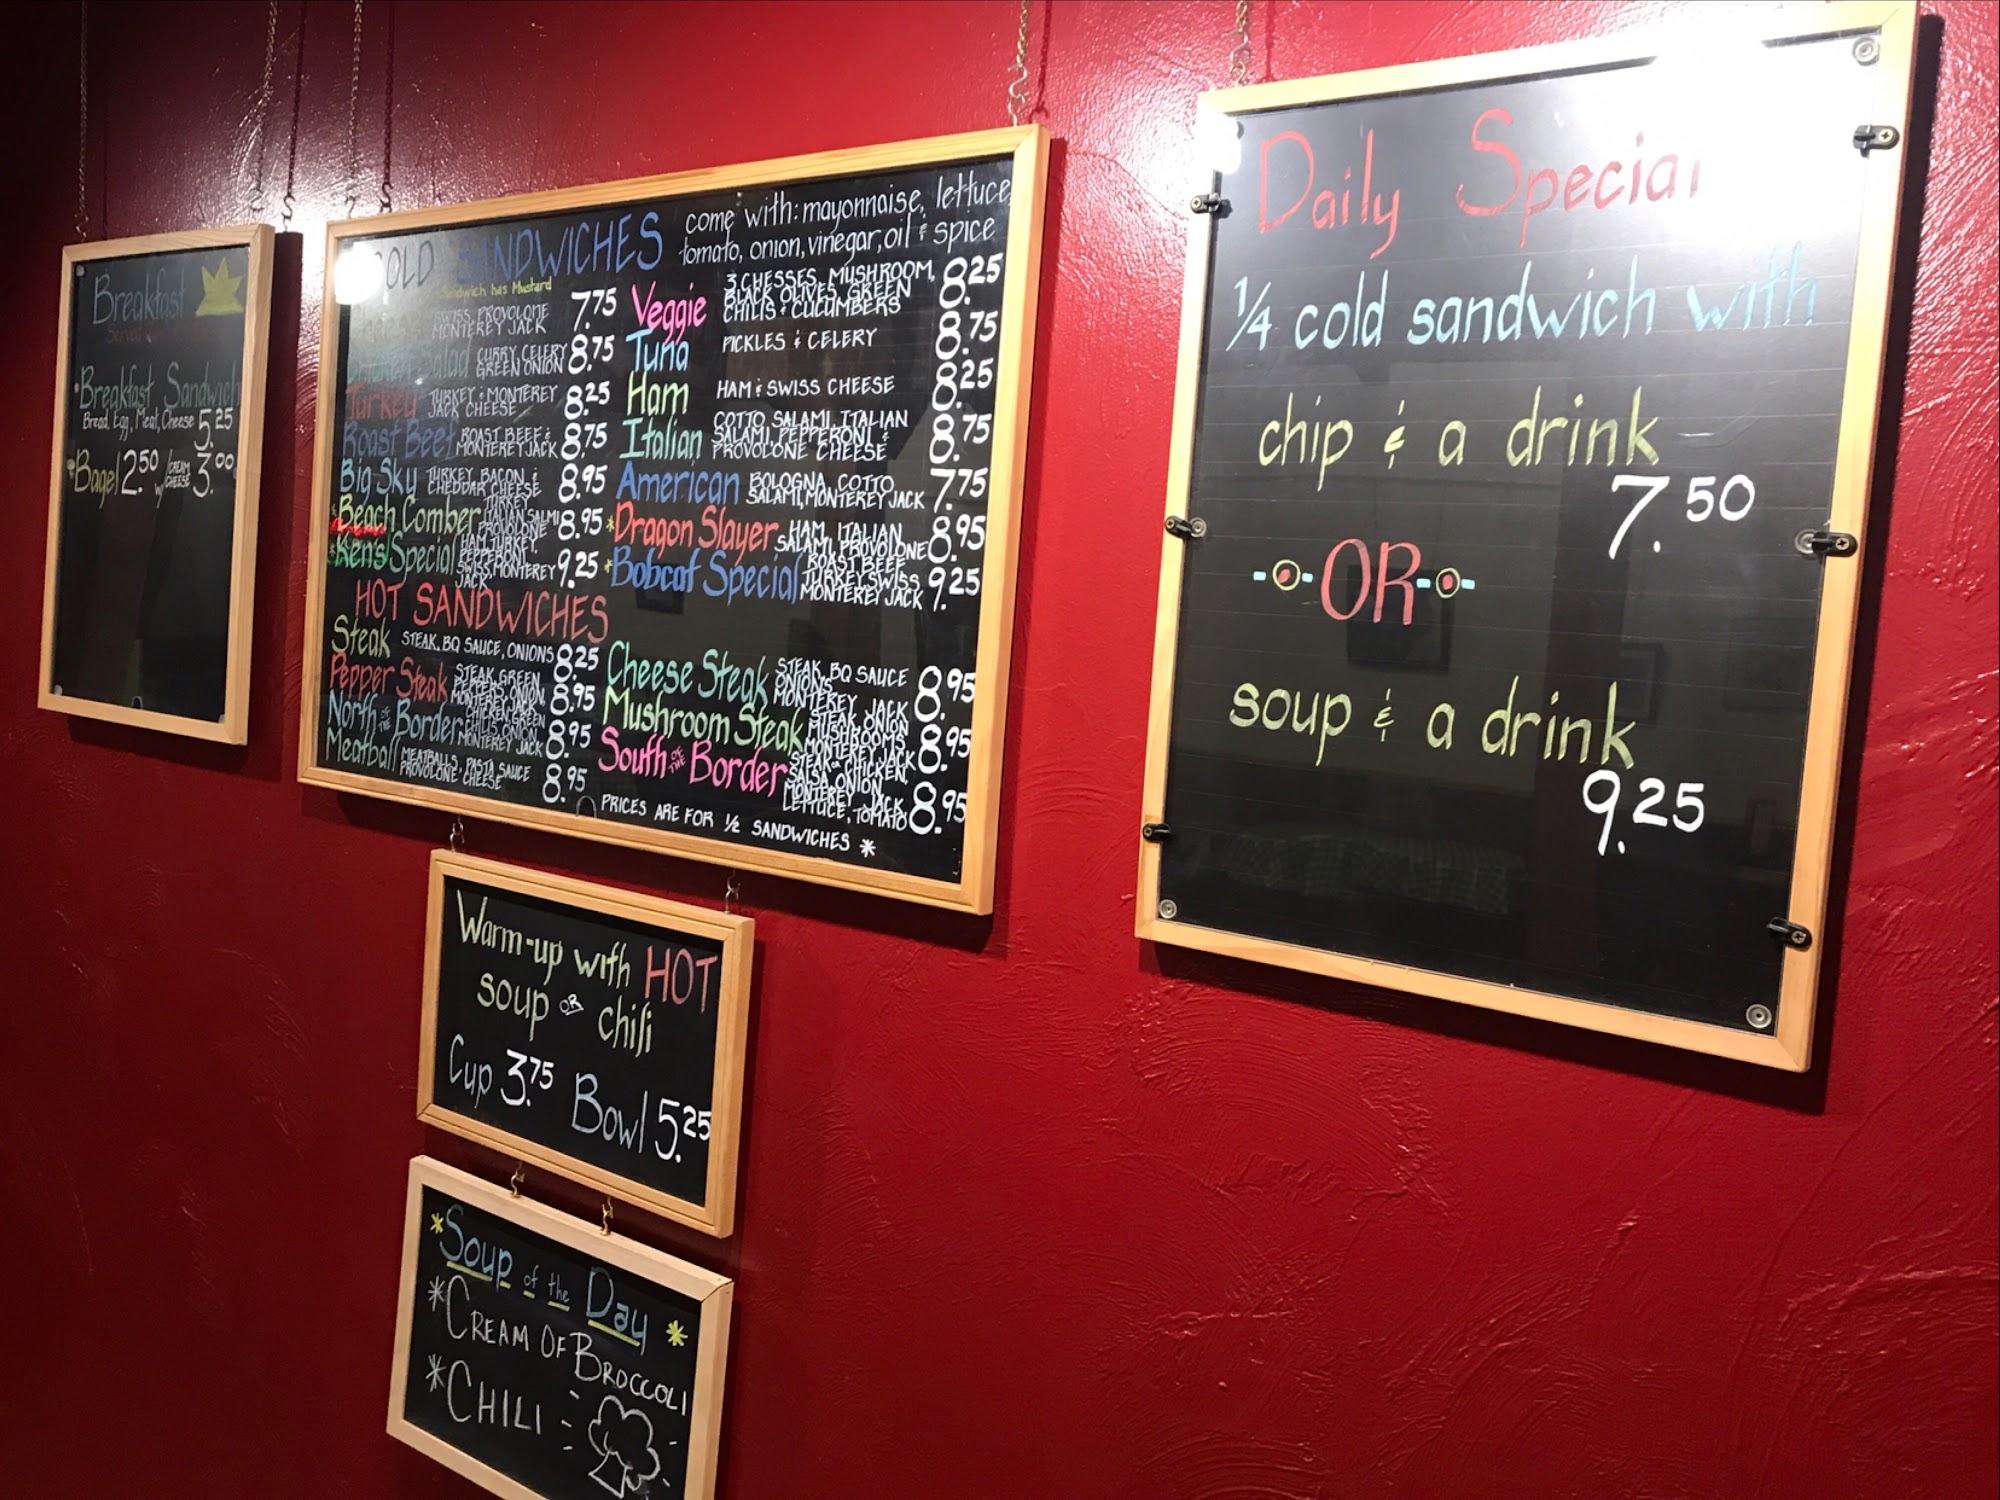 Breakfast
Breakfast Sandwich
Bread, Egg, Meat, Cheese 5.25
Bagel 2.50 w/ CREAM CHEESE 3.00
COLD SANDWICHES
come with: mayonnaise, lettuce,
tomato, onion, vinegar, oil & spice
Sandwich has Mustard
SWISS, PROVOLONE
MONTEREY JACK 7.75
Salad CURRY, CELERY
GREEN ONION 8.75
Turkey TURKEY & MONTEREY
JACK CHEESE 8.25
Roast Beef ROAST BEEF &
MONTEREY JACK 8.75
Big Sky TURKEY, BACON &
CHEDDAR CHEESE 8.95
*Beach Comber TURKEY
PROVALONE 8.95
*Ken's Special HAM, TURKEY,
PEPPERONI,
SWISS, MONTEREY
JACK 9.25
Veggie 3 CHESSES, MUSHROOM,
BLACK OLIVES, GREEN
CHILIS & CUCUMBERS 8.25
Tuna PICKLES & CELERY 8.75
Ham HAM & SWISS CHEESE 8.25
Italian COTTO SALAMI, ITALIAN
SALAMI, PEPPERONI &
PROVOLONE CHEESE 8.75
American BOLOGNA, COTTO
SALAMI, MONTEREY JACK 7.75
*Dragon Slayer HAM, ITALIAN
SALAMI, PROVOLONE 8.95
*Bobcat Special ROAST BEEF
TURKEY, SWISS
MONTEREY JACK 9.25
HOT SANDWICHES
Steak STEAK, BQ SAUCE, ONIONS 8.25
Pepper Steak STEAK, GREEN
ONION,
MONTEREY JACK 8.95
North OF THE Border CHICKEN, GREEN
CHILIS, ONION
MONTEREY JACK 8.95
Meatball MEATBALLS, PASTA SAUCE
PROVOLONE CHEESE 8.95
Cheese Steak STEAK, BQ SAUCE
ONIONS
MONTEREY JACK 8.95
Mushroom Steak STEAK, ONION
MUSHROOMS
MONTEREY JACK 8.95
South OF THE Border STEAK OR CHICKEN,
SALSA, ONION,
MONTEREY JACK,
LETTUCE, TOMATO 8.95
PRICES ARE FOR ½ SANDWICHES *
Warm-up with HOT
soup OR chili
Cup 3.75 Bowl 5.25
*Soup of the Day*
*CREAM OF BROCCOLI
*CHILI
Daily Special
¼ cold sandwich with
chip & a drink
7.50
-OR-
soup & a drink
9.25